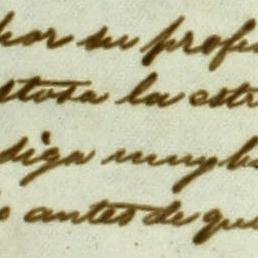 por su profu
stosa la estr
diga muy b
o antes de que